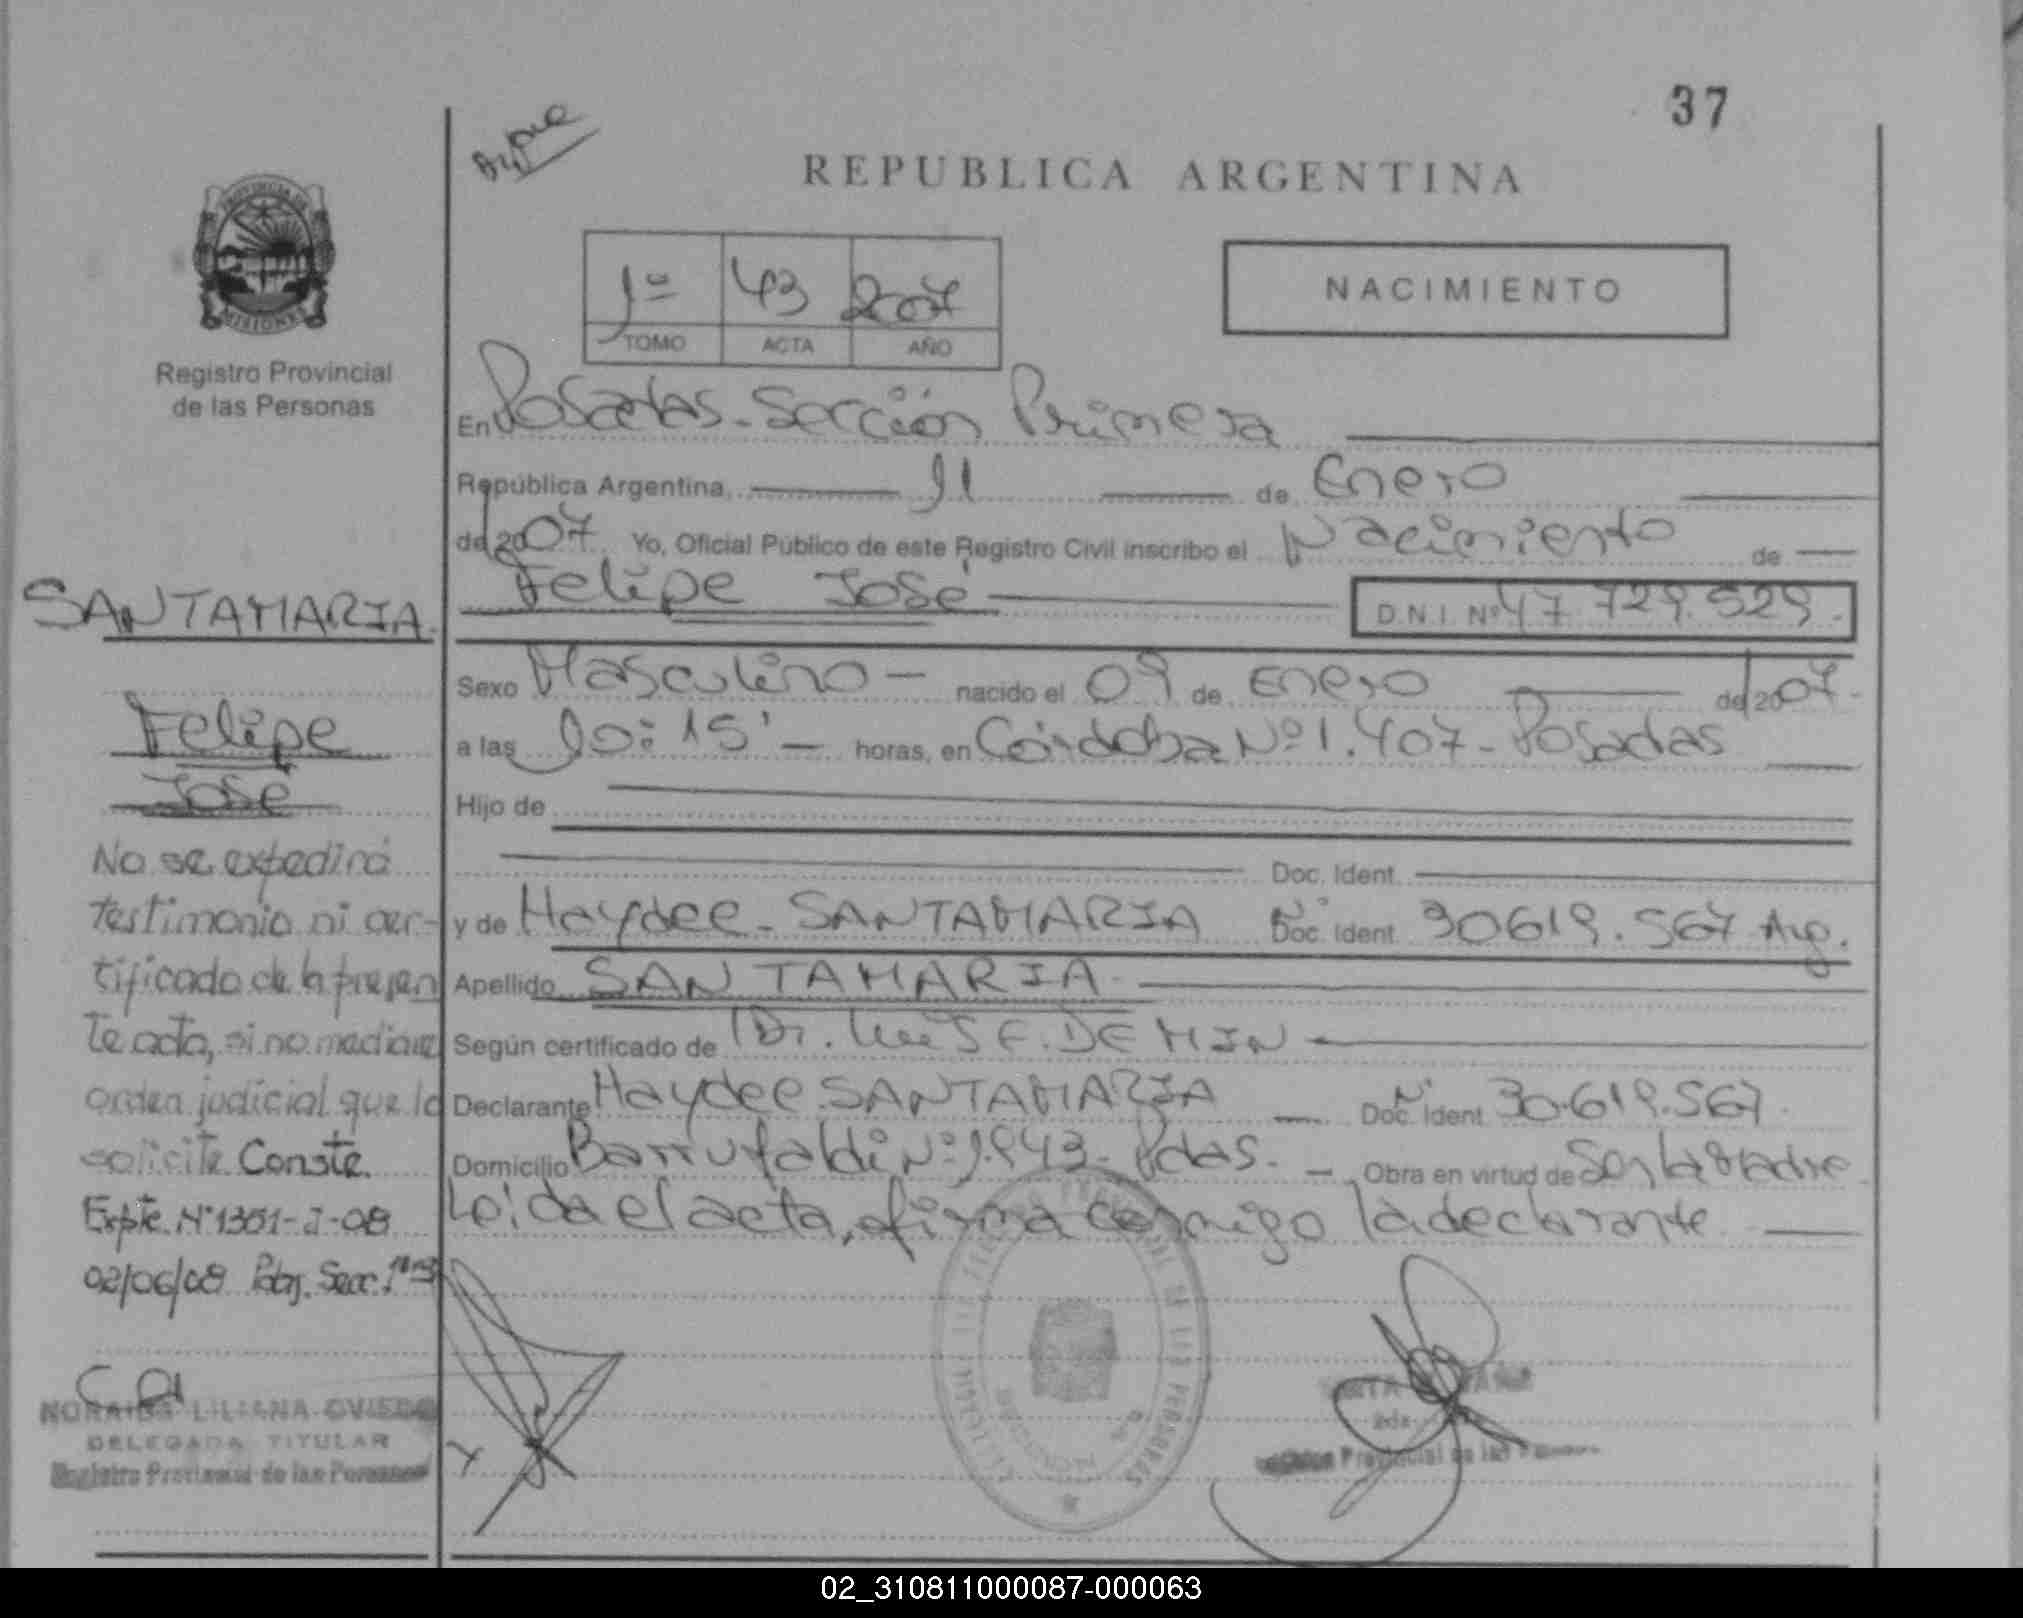 37
REPUBLICA ARGENTINA
PROVINCIA DE
MISIONES
Registro Provincial
de las Personas
1º 43 2007
TOMO ACTA AÑO
NACIMIENTO
En Posadas - Sección Primera
República Argentina, 11 de Enero
de 2007 Yo, Oficial Público de este Registro Civil inscribo el Nacimiento de
Felipe José
D.N.I. Nº 47.729.529.
Sexo Masculino - nacido el 09 de Enero de 2007.
a las 10:15' - horas, en Córdoba Nº 1.407 - Posadas
Hijo de
Doc. Ident.
y de Haydee - SANTAMARIA Nº Doc. Ident. 30619.567 Arg.
Apellido SANTAMARIA
Según certificado de Dr. Luis E. DEMIN
Declarante Haydee SANTAMARIA Nº Doc. Ident. 30.619.567
Domicilio Barrufaldi Nº 1.943 - Pdas. - Obra en virtud de Ser la Madre
Leida el acta, firma conmigo la declarante
SANTAMARIA
Felipe
José
No se expedirá
testimonio ni cer-
tificado de la presen
te acta, si no mediare
orden judicial que lo
solicite. Conste.
Expte. Nº 1351-J-08
02/06/08 Pdas. Secc. 1ra
NORAIDA LILIANA OVIEDO
DELEGADA TITULAR
Registro Provincial de las Personas
X
Provincial de las
02_310811000087-000063